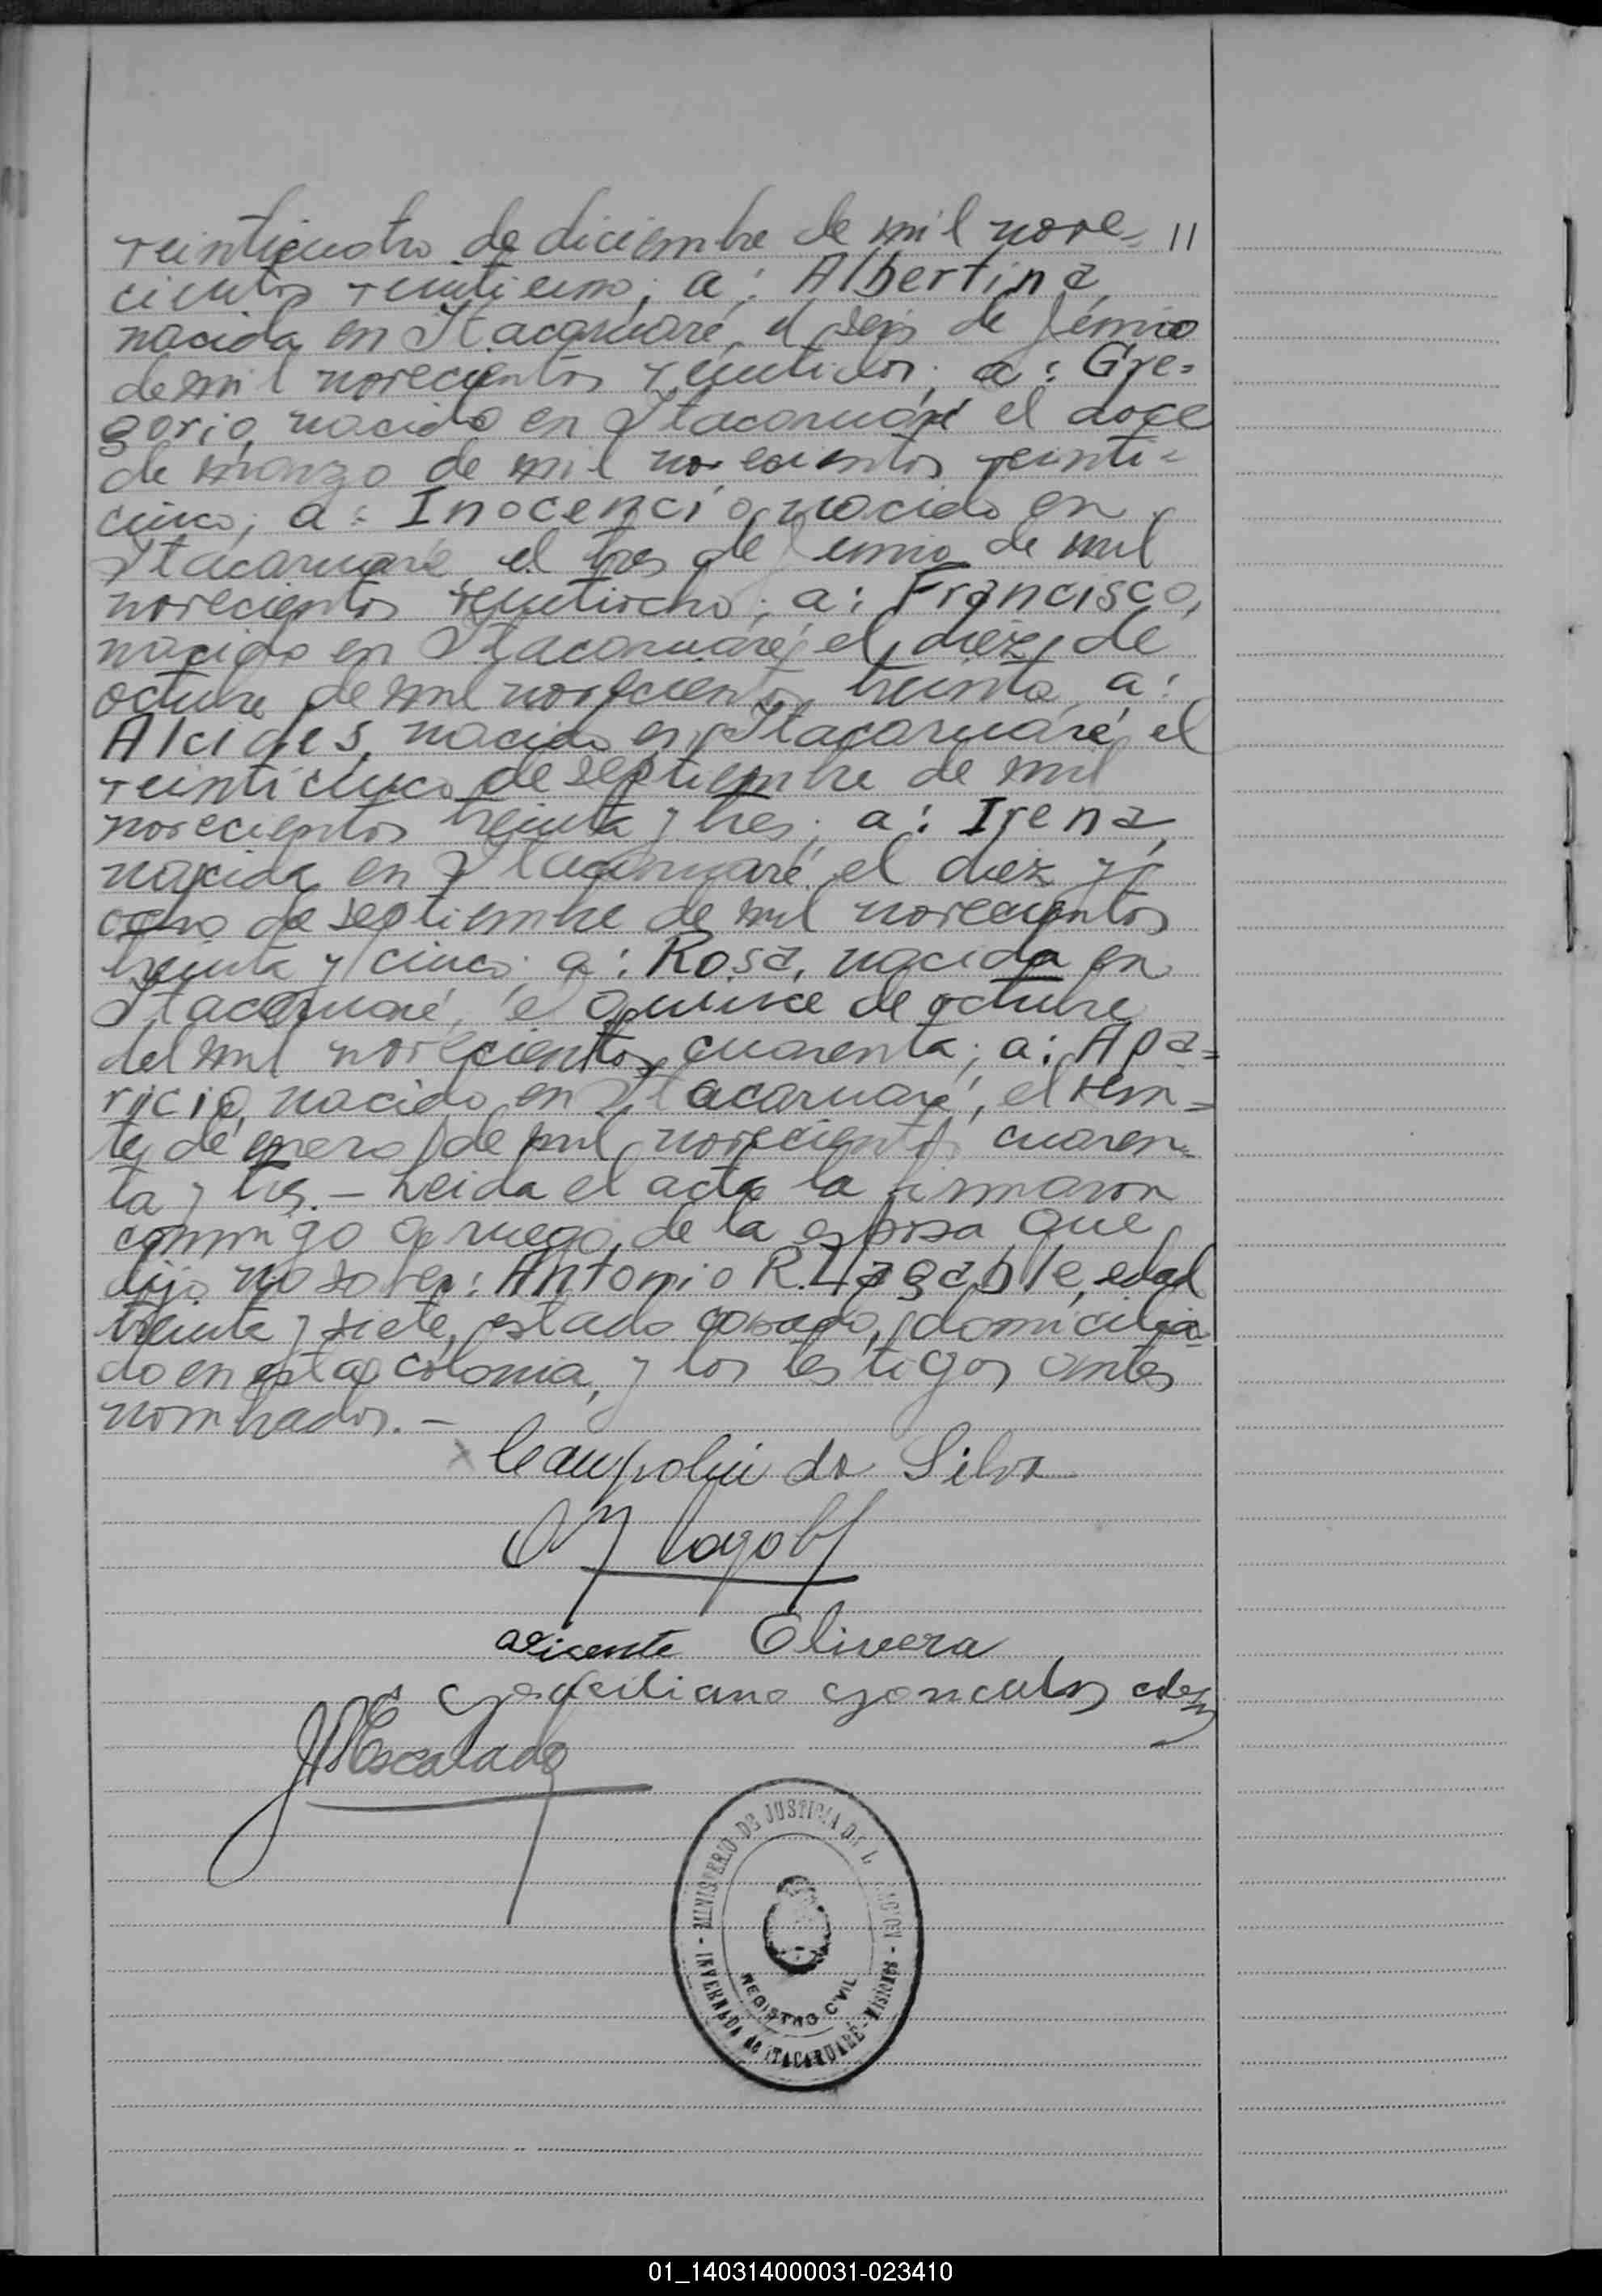 veinticuatro de diciembre de mil nove= 11
cientos veintiuno; a: Albertina,
nacida en Itacaruaré, el seis de junio
de mil novecientos veintidos; a: Gre=
gorio, nacido en Itacaruaré el doce
de marzo de mil novecientos veinti=
cinco; a: Inocencio, nacido en
Itacaruaré, el tres de junio de mil
novecientos veintiocho; a: Francisco,
nacido en Itacaruaré, el diez de
octubre de mil novecientos treinta, a:
Alcides, nacido en Itacaruaré, el
veinticinco de septiembre de mil
novecientos treinta y tres; a: Irena,
nacida en Itacaruaré, el diez y
ocho de septiembre de mil novecientos
treinta y cinco; a: Rosa, nacida en
Itacaruaré, el quince de octubre
del mil novecientos cuarenta; a: Apa=
ricio, nacido en Itacaruaré, el vein=
te de enero de mil novecientos cuaren=
ta y tres. — Leida el acta la firmaron
conmigo a ruego de la esposa que
dijo no saber: Antonio R. Lagable, edad
treinta y siete, estado casado, domicilia
do en esta colonia, y los testigos antes
nombrados. —
x Caupolin da Silva
Vicente Olivera
Goncalves
JMEscalada
MINISTERIO DE JUSTICIA DE LA NACION
REGISTRO CIVIL
INVERNADA de ITACARUARÉ - MISIONES
01_140314000031-023410